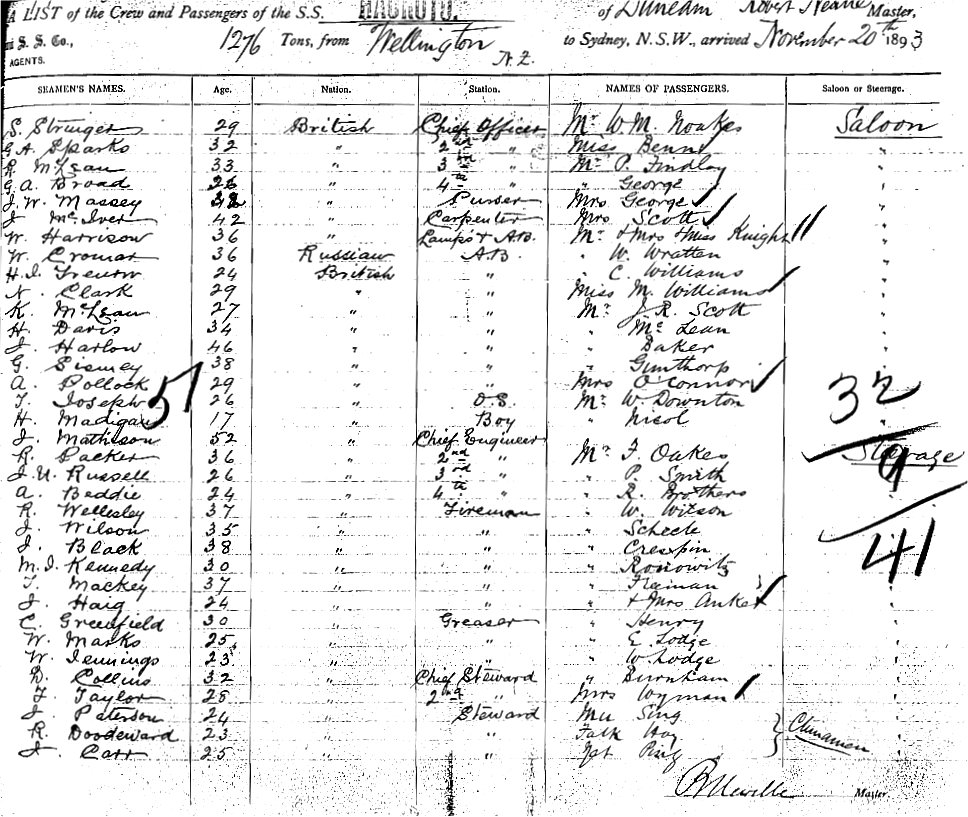 A LIST of the Crew and Passengers of the S.S. HAUROTO. of Dunedin Robert Neville Master,
S. S. Co., 1276 Tons, from Wellington N.Z. to Sydney, N.S.W., arrived November 20th 1893
AGENTS.
SEAMEN'S NAMES. Age. Nation. Station. NAMES OF PASSENGERS. Saloon or Steerage.
S. Stringer 29 British Chief Officer Mr W. M. Noakes Saloon
G. A. Sparks 32 " 2nd " Miss Benny "
R. McLean 33 " 3rd " Mr P. Findlay "
G. A. Broad 26 " 4th " " George "
J. W. Massey " Purser Mrs George "
J McIver 42 " Carpenter Mrs Scott "
W. Harrison 36 " Lamps & A.B. Mr & Mrs & Miss Knight "
W. Cromar 36 Russian A.B. " W. Wratten "
H. J. 24 British " " C. Williams "
N. Clark 29 " " Miss M. Williams "
K. McLean 27 " " Mr J. R. Scott "
H. Davis 34 " " " McLean "
J. Harlow 46 " " " Baker "
G. Sismey 38 " " " Gunthorp "
A. Pollock 29 " " Mrs O'Connor "
51
T. Joseph 26 " O.S. Mr W. Downton 32
H. Madigan 17 " Boy " Nicol
J. Mathison 52 " Chief Engineer
R. Packer 36 " 2nd " Mr F. Oakes Steerage
9
J. U. Russell 26 " 3rd " " P. Smith
A. Beddie 24 " 4th " " R. Brothers "
R. Wellesley 37 " Fireman " W. Wilson
J. Wilson 35 " " " Scheele
J. Black 38 " " " Crespin 41
M. J. Kennedy 30 " " " Rosowitz
T. Mackey 37 " " " Freiman
J. Haig 24 " " " & Mrs Anker "
C. Greenfield 30 " Greaser " Henry "
W. Marks 25 " " " E. Lodge "
W. Jennings 23 " " " W. Lodge "
D. Collins 32 " Chief Steward " Burnham "
F. Taylor 28 " 2nd " Mrs Wyman "
J. Paterson 24 " Steward Mu Sing
R. Doodeward 23 " " Falk Hoy Chinamen
J. Carr 25 " "
R Neville Master.